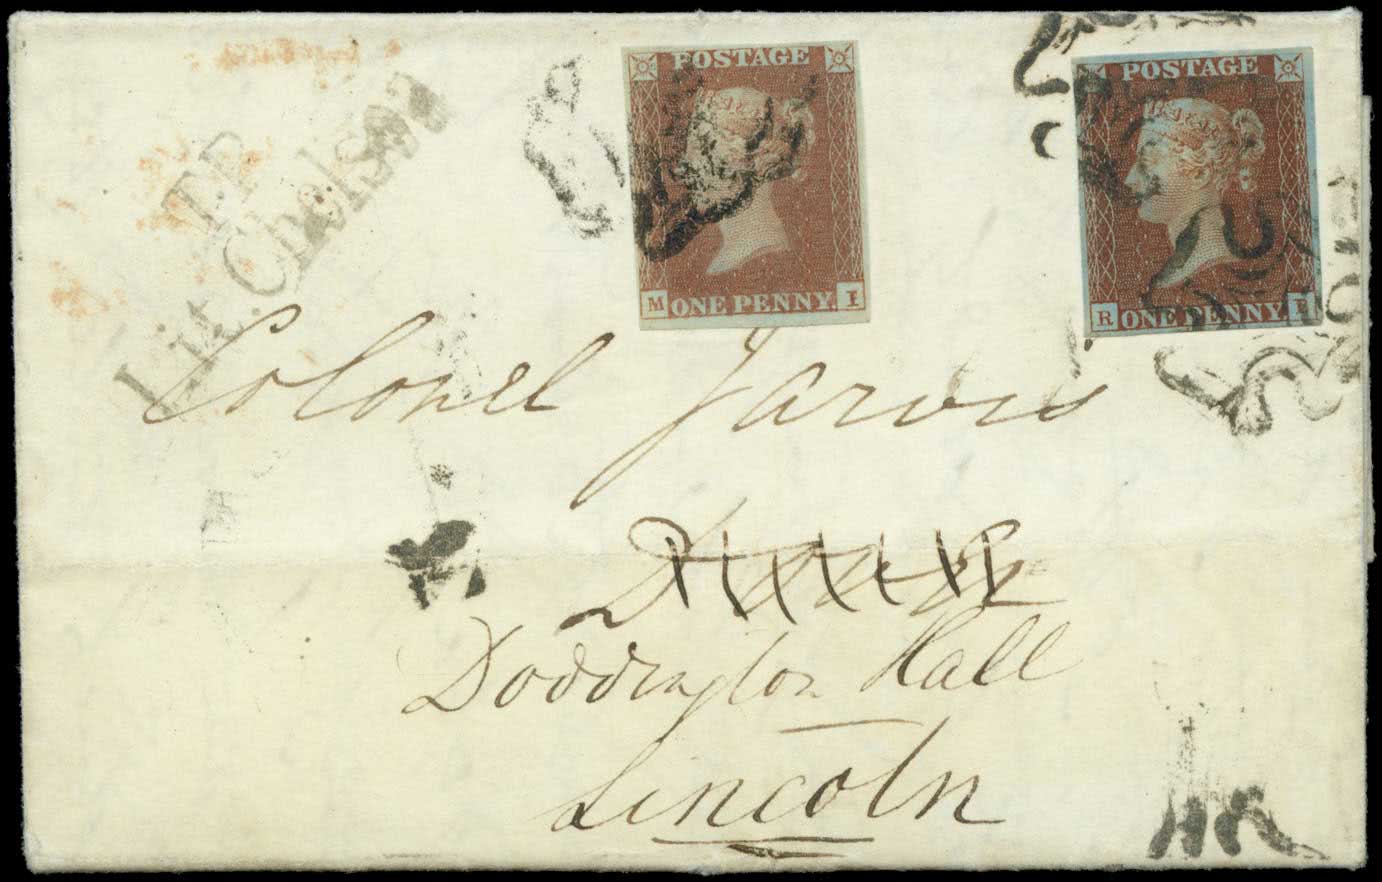 T.P
Lit. Chelsea
POSTAGE
M ONE PENNY. I
POSTAGE
R ONE PENNY
Colonel Jarvis
Doddington Hall
Lincoln